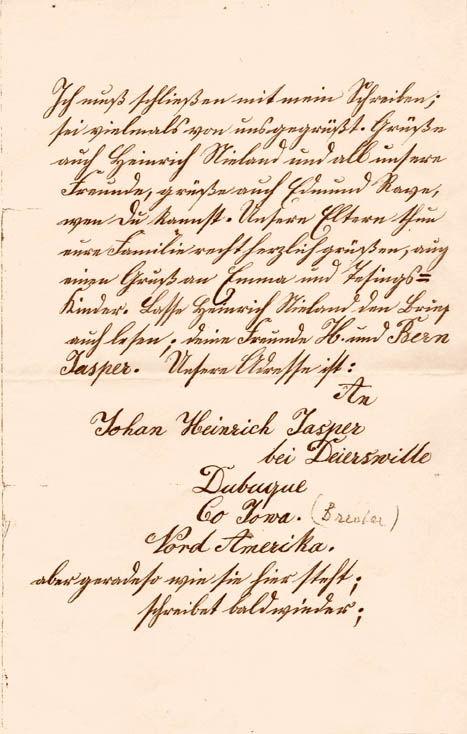 Ich muß schließen mit mein Schreiben;
sei vielmals von uns gegrüßt. Grüße
auch Heinrich Nieland und all unsere
Freunde, grüße auch Edmund Rave,
wen du kannst. Unsere Eltern thun
eure Familie recht herzlich grüßen, aug
einen Gruß an Emma und Tesings=
Kinder. Lasse Heinrich Nieland den Brief
auch lesen; deine Freunde H. und Bern
Jasper. Unsere Adresse ist:
An
Johan Heinrich Jasper
bei Deierswille
Dubuque
Co Iowa.
Nord Amerika.
aber geradeso wie sie hier steht;
schreibet bald wieder;